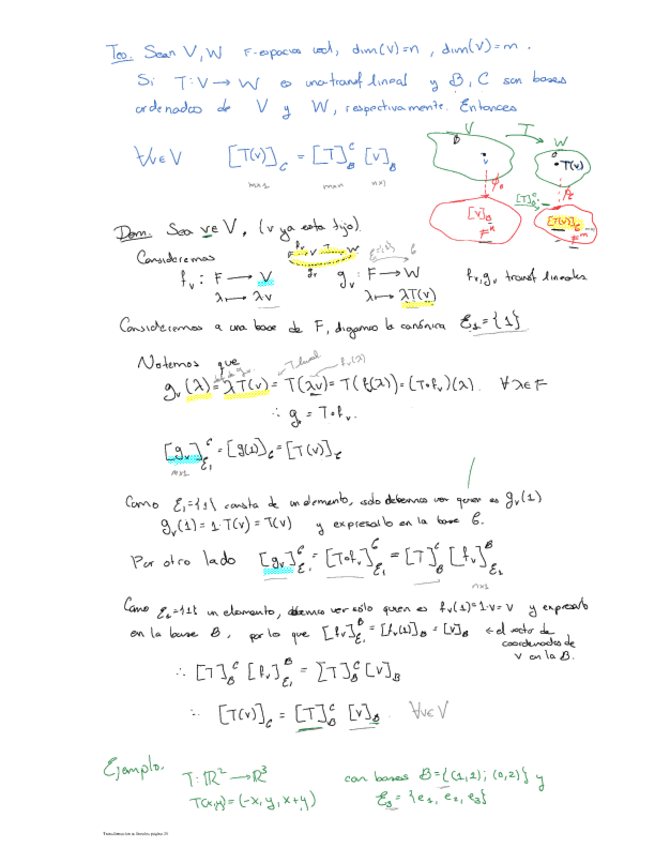 Teo. Sean V, W F-espacios vect, dim(V)=n, dim(V)=m.
Si T: V → W es una transf lineal y B, C son bases
ordenadas de V y W, respectivamente. Entonces
∀v∈V [T(v)]_C = [T]_B^C [v]_B
mx1 mxn nx1
V T W
B v T(v)
[T]_B^C
[v]_B [T(v)]_C
F^n F^m
Dem. Sea v∈V, (v ya esta fijo).
Consideremos
f_v : F → V g_v : F → W f_v, g_v transf lineales
λ ↦ λv λ ↦ λT(v)
Consideremos a una base de F, digamos la canónica ℰ_1={1}
Notemos que T lineal f_v(λ)
g_v(λ) = λT(v) = T(λv) = T(f(λ)) = (T∘f_v)(λ). ∀λ∈F
∴ g_v = T∘f_v.
[g_v]_{ℰ_1}^C = [g(1)]_C = [T(v)]_C
mx1
Como ℰ_1={1} consta de un elemento, solo debemos ver quien es g_v(1)
g_v(1) = 1·T(v) = T(v) y expresarlo en la base C.
Por otro lado [g_v]_{ℰ_1}^C = [T∘f_v]_{ℰ_1}^C = [T]_B^C [f_v]_{ℰ_1}^B
nx1
Como ℰ_1={1} un elemento, debemos ver sólo quien es f_v(1)=1·v=v y expresarlo
en la base B, por lo que [f_v]_{ℰ_1}^B = [f_v(1)]_B = [v]_B ← el vector de
coordenadas de
v en la B.
∴ [T]_B^C [f_v]_{ℰ_1}^B = [T]_B^C [v]_B
∴ [T(v)]_C = [T]_B^C [v]_B ∀v∈V
Ejemplo. T: ℝ² → ℝ³ con bases B={(1,1); (0,2)} y
T(x,y)=(-x, y, x+y) ℰ_3 = {e_1, e_2, e_3}